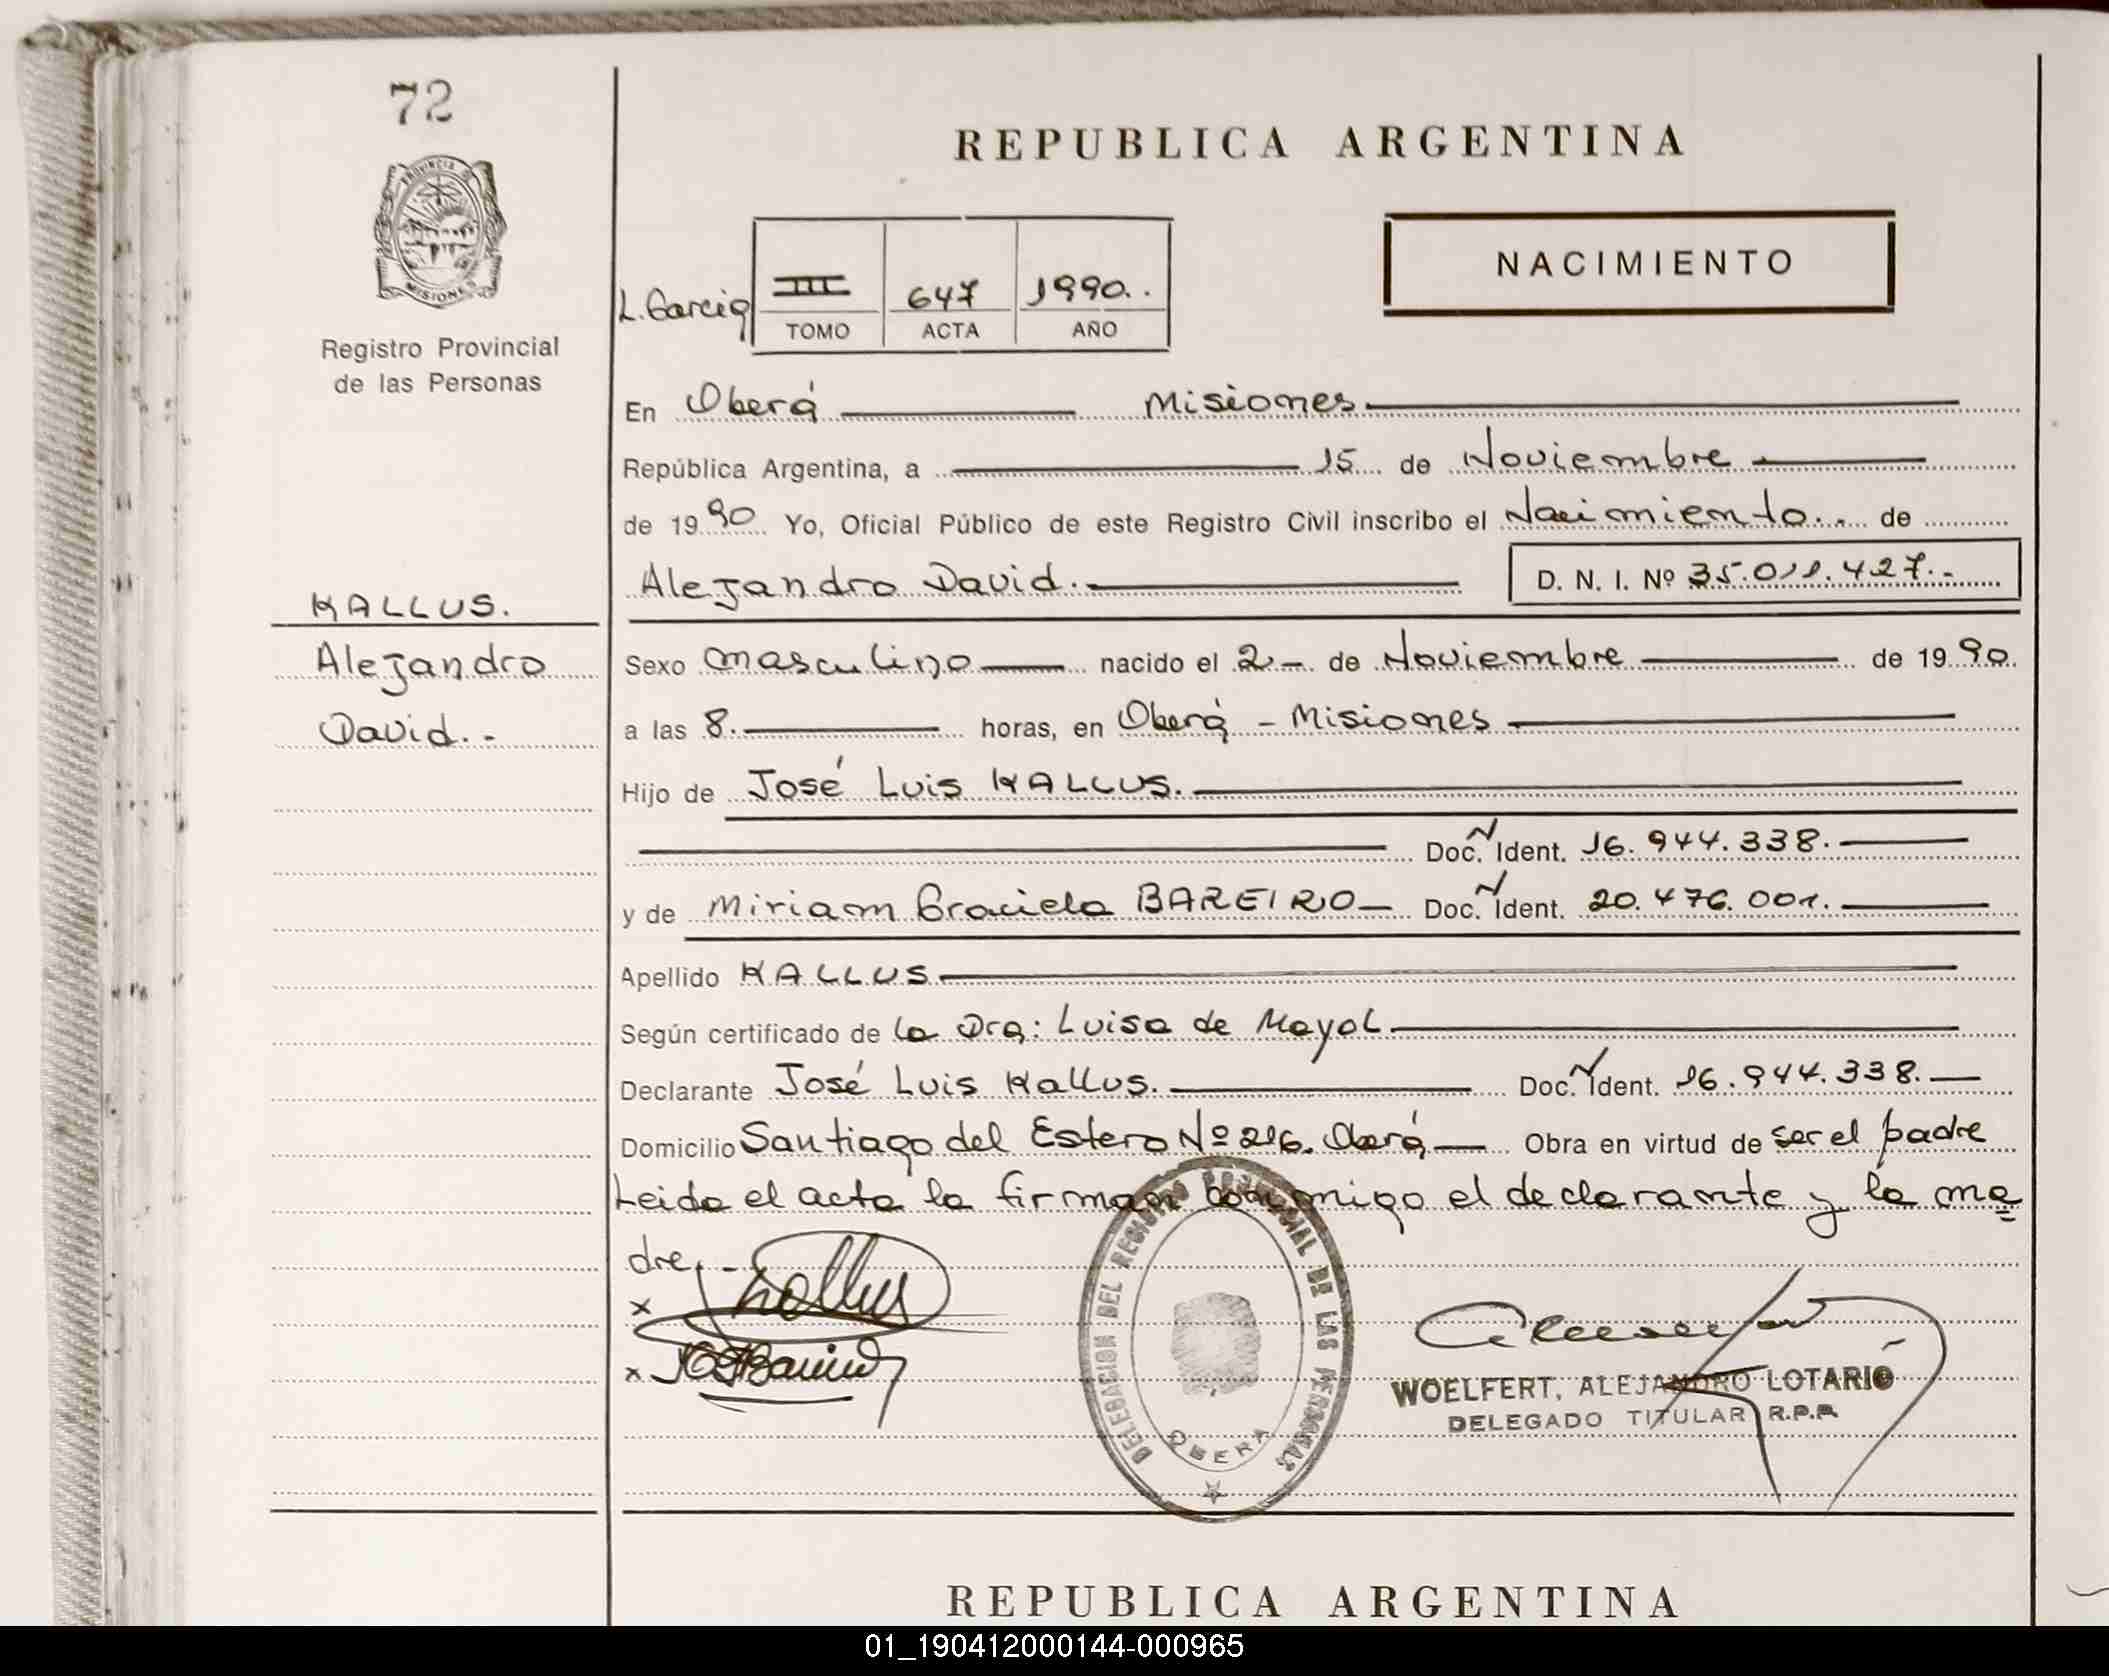 72
REPUBLICA ARGENTINA
PROVINCIA DE
MISIONES
Registro Provincial
de las Personas
NACIMIENTO
L. Garcia
III 647 1990..
TOMO ACTA AÑO
En Oberá Misiones
República Argentina, a 15 de Noviembre
de 1990 Yo, Oficial Público de este Registro Civil inscribo el Nacimiento... de
Alejandro David. D. N. I. Nº 35.011.427.-
KALLUS.
Alejandro
David.-
Sexo masculino nacido el 2- de Noviembre de 1990
a las 8. horas, en Oberá - Misiones
Hijo de José Luis KALLUS.
Doc. N Ident. 16.944.338.
y de Miriam Graciela BAREIRO Doc. N Ident. 20.476.001.
Apellido KALLUS
Según certificado de la Dra: Luisa de Mayol
Declarante José Luis Kallus. Doc. N Ident. 16.944.338.
Domicilio Santiago del Estero Nº 216. Oberá Obra en virtud de ser el padre
Leida el acta la firman conmigo el declarante y la ma
dre.-
x Kallus
x
DELEGACION DEL REGISTRO PROVINCIAL DE LAS PERSONAS
OBERA
WOELFERT, ALEJANDRO LOTARIO
DELEGADO TITULAR R.P.P.
REPUBLICA ARGENTINA
01_190412000144-000965